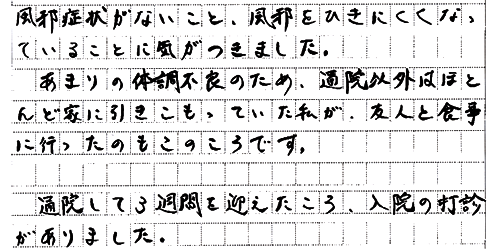 風邪症状がないこと、風邪をひきにくくなっ
ていることに気がつきました。
あまりの体調不良のため、通院以外はほと
んど家に引きこもっていた私が、友人と食事
に行ったのもこのころです。
通院して3週間を迎えたころ、入院の打診
がありました。